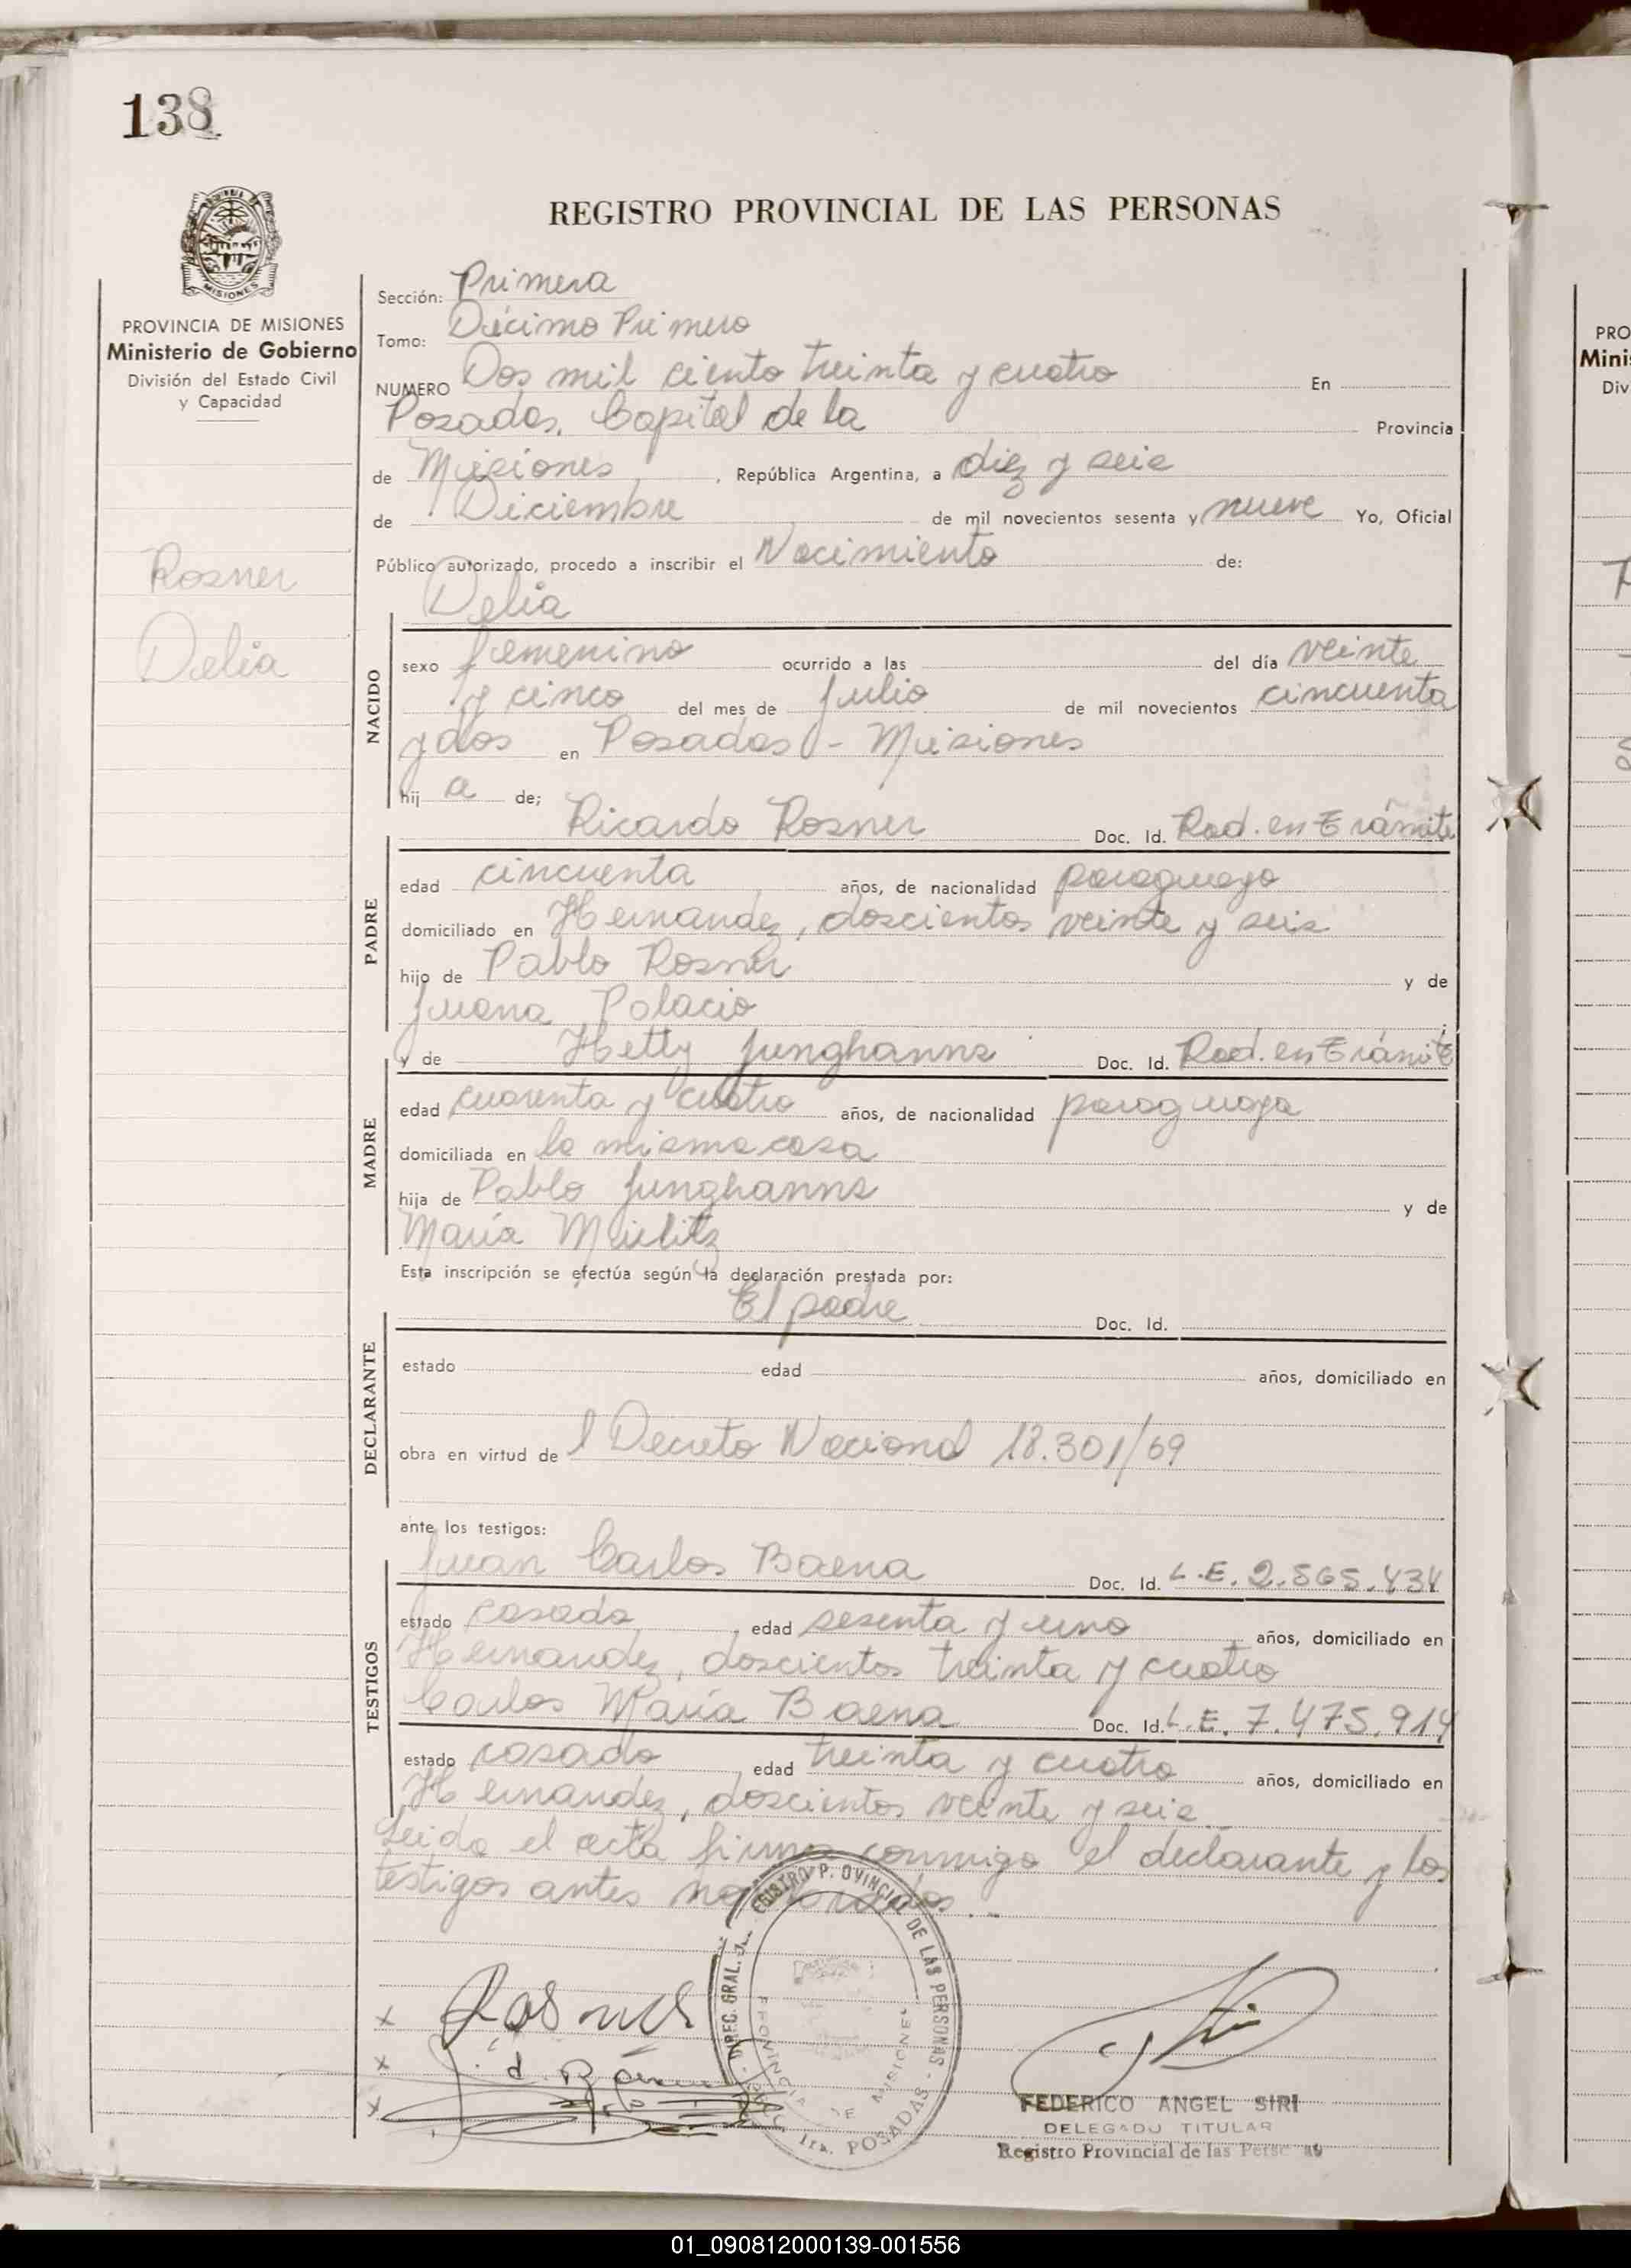 138
REGISTRO PROVINCIAL DE LAS PERSONAS
MISIONES
PROVINCIA DE MISIONES
Ministerio de Gobierno
División del Estado Civil
y Capacidad
Rosner
Delia
Sección: Primera
Tomo: Décimo Primero
NUMERO Dos mil ciento treinta y cuatro En
Posadas, Capital de la Provincia
de Misiones, República Argentina, a diez y seis
de Diciembre de mil novecientos sesenta y nueve Yo, Oficial
Público autorizado, procedo a inscribir el Nacimiento de:
Delia
NACIDO
sexo femenino ocurrido a las del día veinte
y cinco del mes de Julio de mil novecientos cincuenta
y dos en Posadas - Misiones
hij a de;
Ricardo Rosner Doc. Id. Rad. en trámite
PADRE
edad cincuenta años, de nacionalidad paraguayo
domiciliado en Hernandez, doscientos veinte y seis
hijo de Pablo Rosner y de
Juana Palacio
y de Hetty Junghanns Doc. Id. Rad. en trámite
MADRE
edad cuarenta y cuatro años, de nacionalidad paraguaya
domiciliada en la misma casa
hija de Pablo Junghanns y de
María
Esta inscripción se efectúa según la declaración prestada por:
El padre Doc. Id.
DECLARANTE
estado edad años, domiciliado en
obra en virtud de l Decreto Nacional 18.301/69
ante los testigos:
Juan Carlos Baena Doc. Id. L.E. 2.565.434
TESTIGOS
estado casado, edad sesenta y uno años, domiciliado en
Hernandez, doscientos treinta y cuatro
Carlos María Baena Doc. Id. L.E. 7.475.914
estado casado, edad treinta y cuatro años, domiciliado en
Hernandez, doscientos veinte y seis
Leida el acta firma conmigo el declarante y los
testigos antes nombrados..
x Rosner
x
x
FEDERICO ANGEL SIRI
DELEGADO TITULAR
Registro Provincial de las Perso as
PROVINCIA DE MISIONES
POSADAS
PRO
Minis
Div
01_090812000139-001556